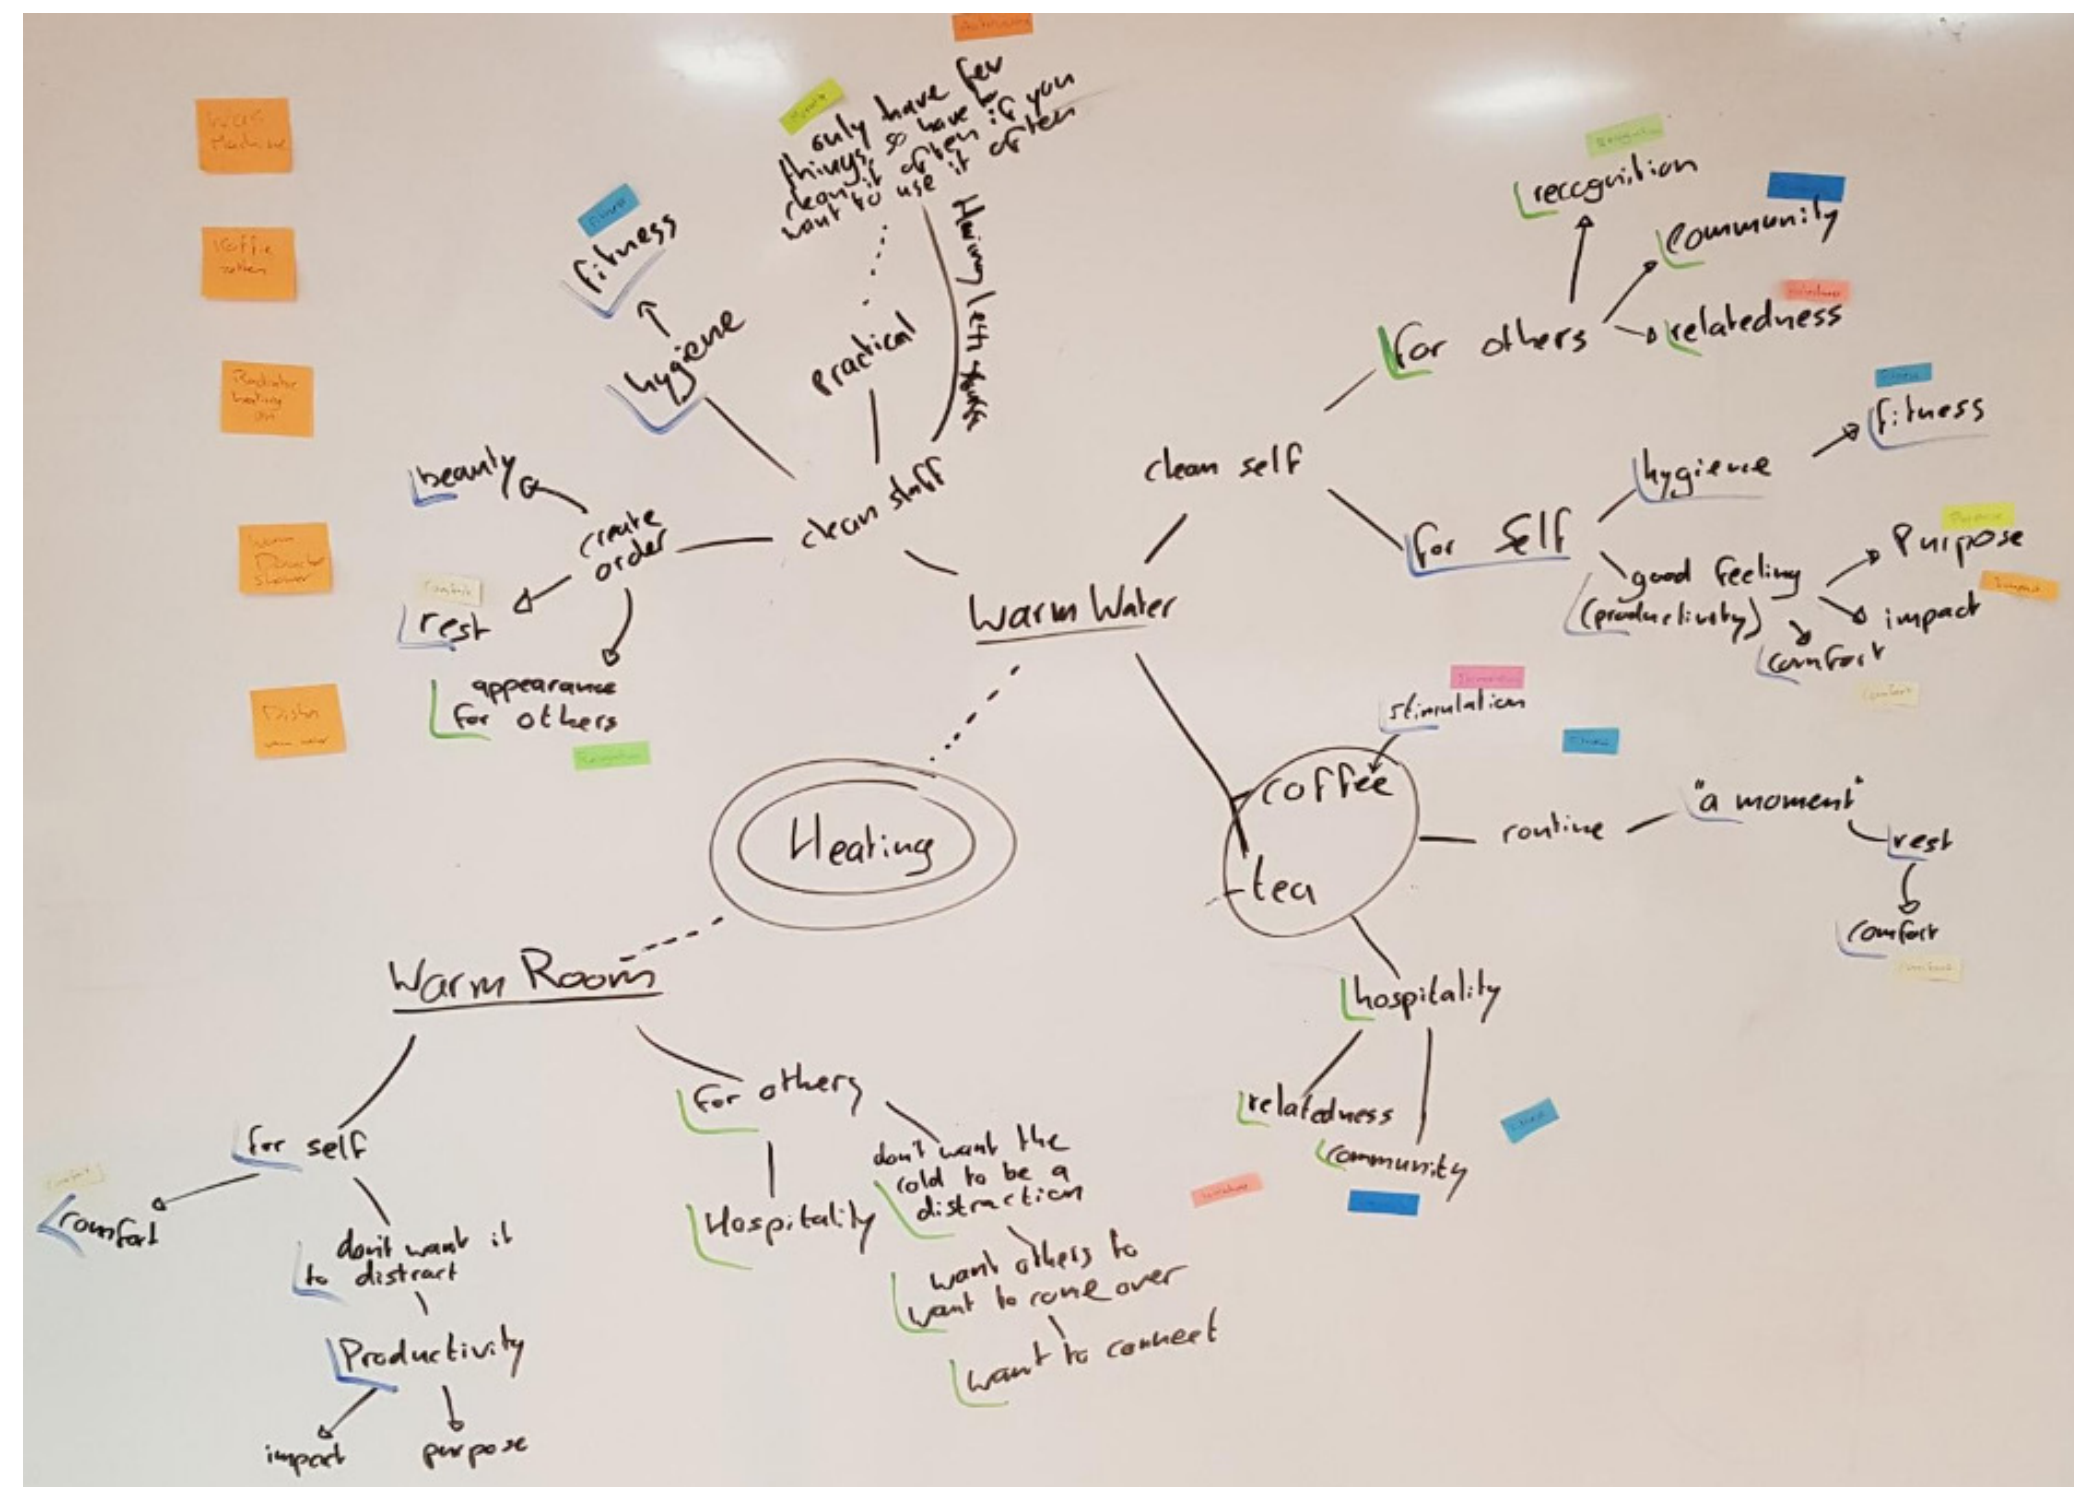 Machine
Koffie
zetten
Radiator
heating
on
Warm
shower
only have few
things, so have to
clean it often if you
want to use it often
Having
Practical
Fitness
fitness
hygiene
beauty
create
order
clean stuff
rest
appearance
for others
Recognition
Warm Water
clean self
for others
recognition
Community
relatedness
for Self
hygience
fitness
good feeling
(productivity)
Purpose
Purpose
impact
Impact
comfort
Comfort
stimulation
coffee
tea
routine
"a moment"
rest
comfort
hospitality
relatedness
community
Heating
Warm Room
for self
comfort
don't want it
to distract
Productivity
impact
purpose
for others
Hospitality
don't want the
cold to be a
distraction
want others to
want to come over
want to connect